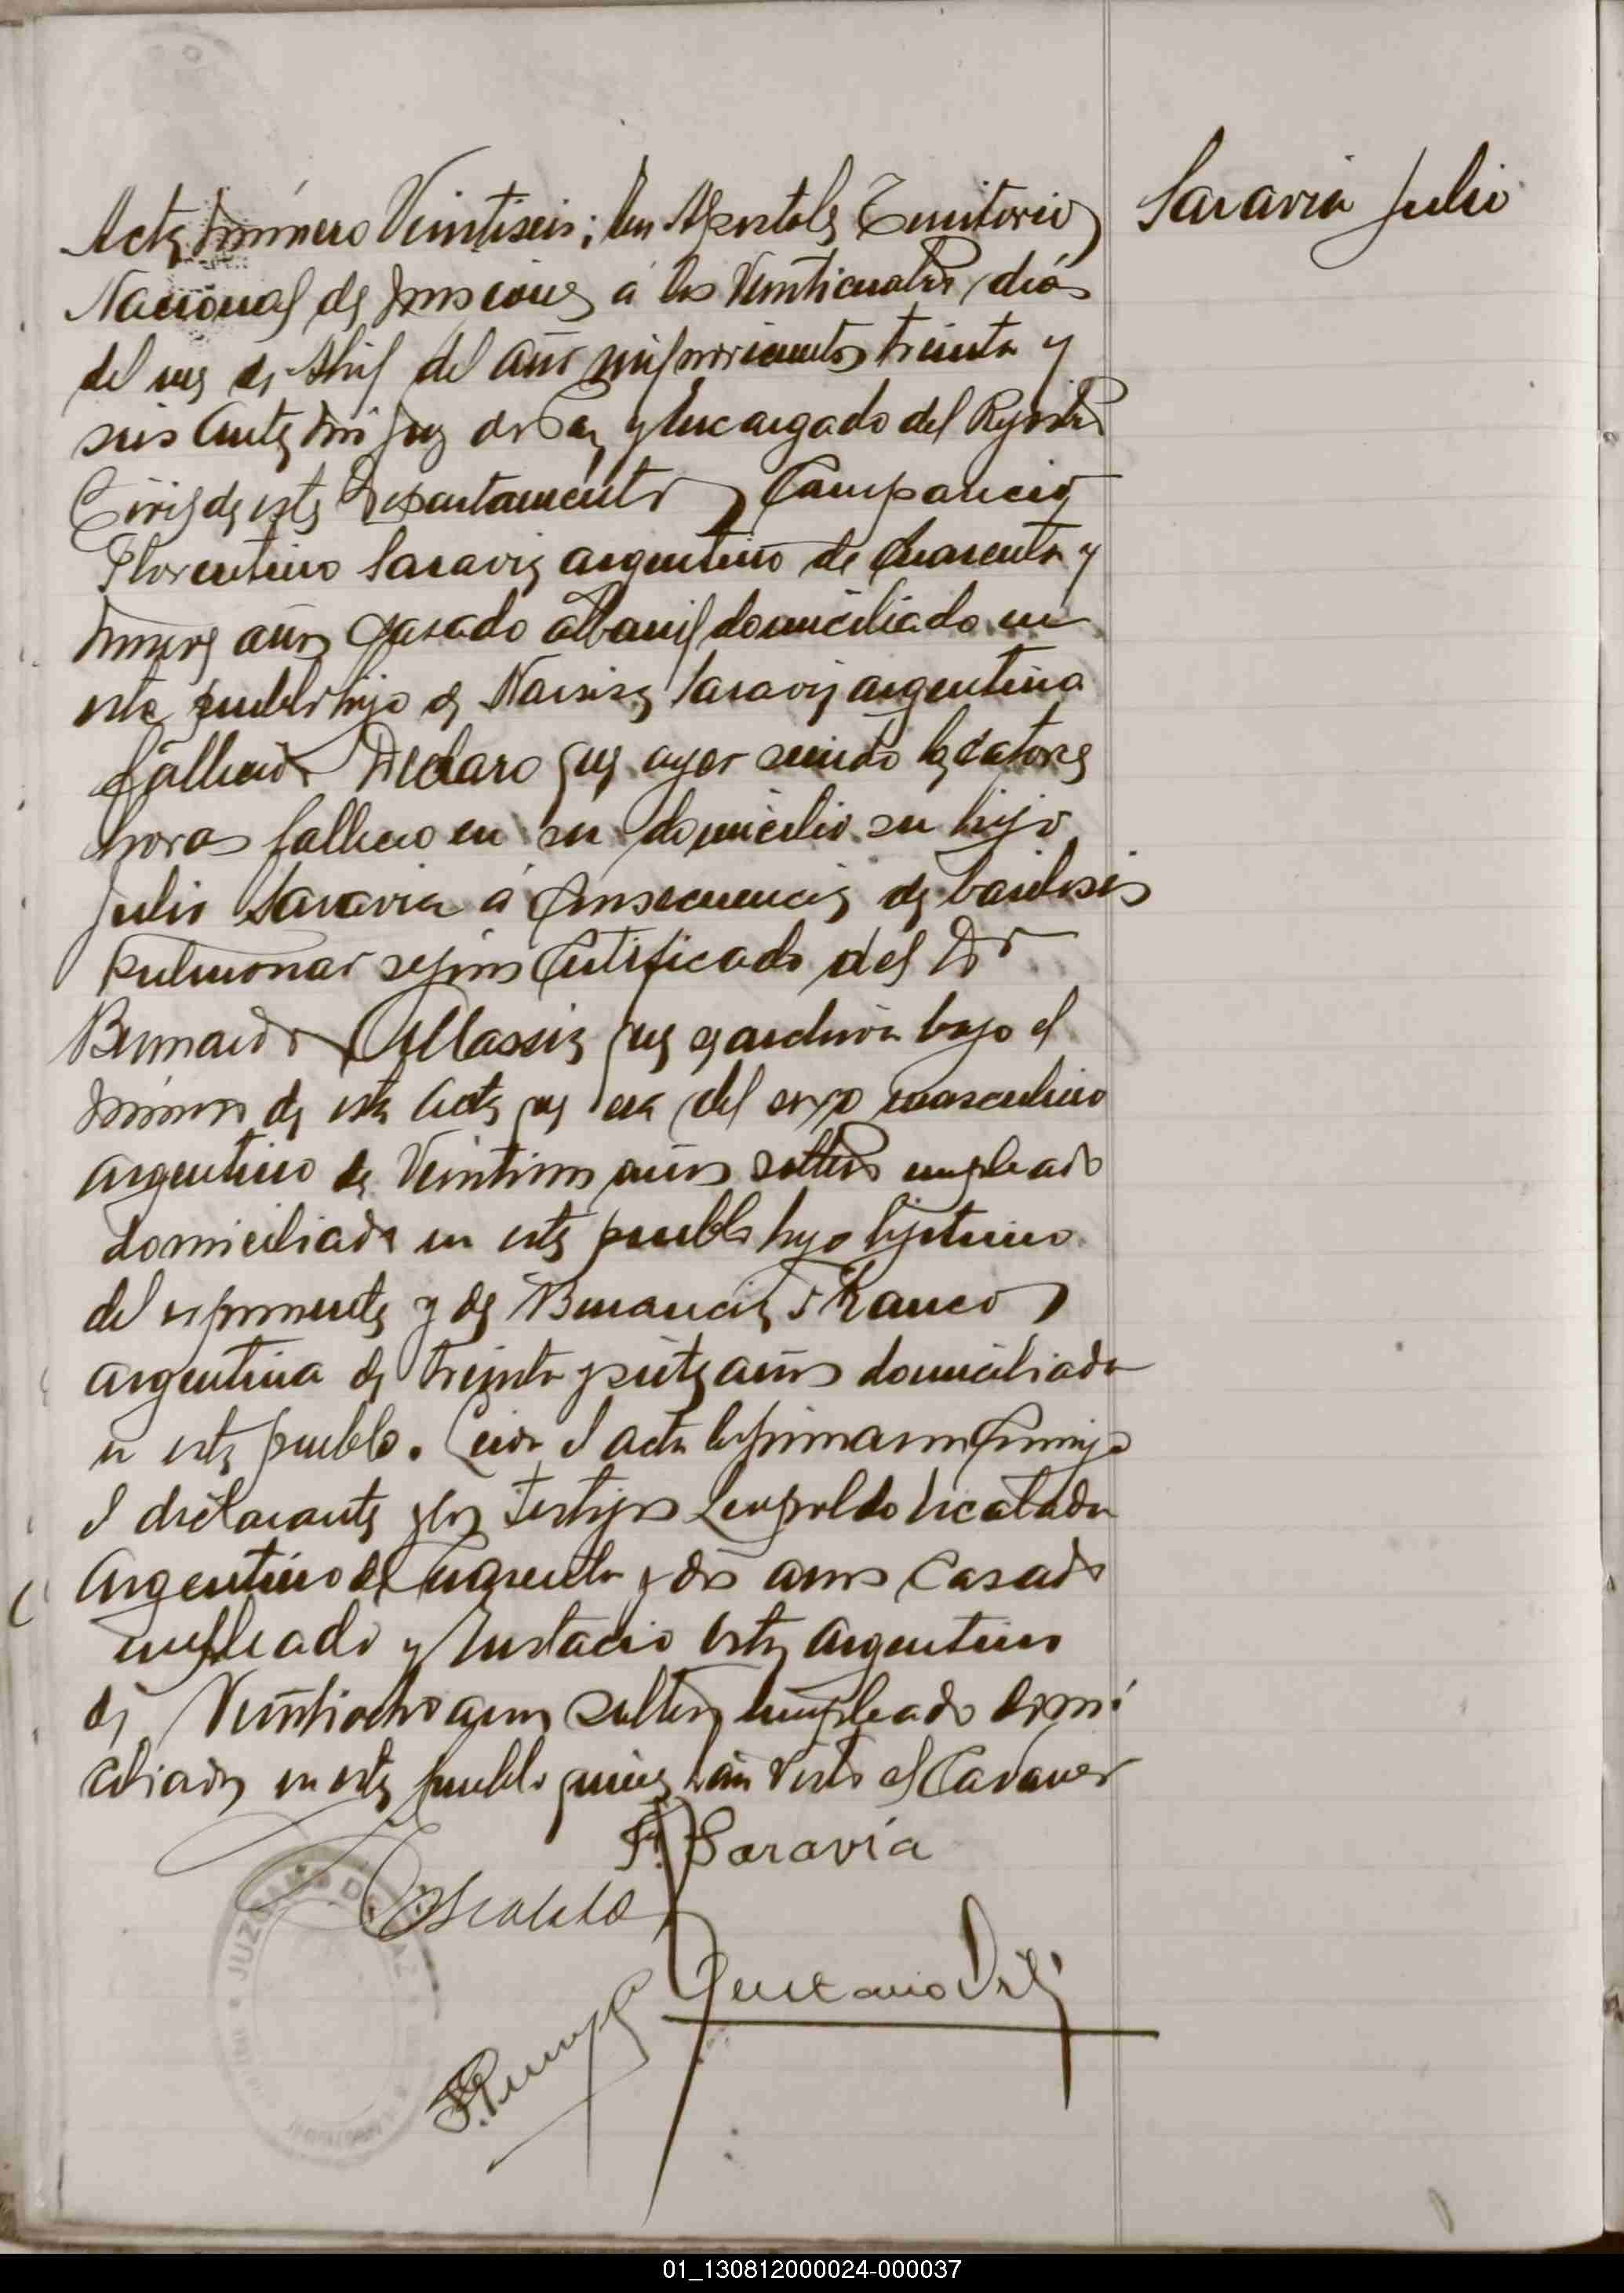 Saravia Julio
Acta número Veintiseis; En Apostoles Territorio
Nacional de Misiones á los Veinticuatro dias
del mes de Abril del año mil novecientos treinta y
seis Ante mi Juez de Paz y Encargado del Registro
Civil de este Departamento Comparecio
Florentino Saravia argentino de Cuarenta y
nueve años Casado albañil domiciliado en
este pueblo hijo de Narsisa Saravia argentina
fallecida Declaro que ayer siendo las catorce
horas fallecio en su domicilio su hijo
Julio Saravia á Consecuencia de bacilosis
pulmonar según Certificado del Dr
Bernardo que se archiva bajo el
número de esta Acta que era del sexo masculino
argentino de años soltero empleado
domiciliado en este pueblo hijo lejitimo
del esponente y de Franco
argentina de treinta y siete años domiciliada
en este pueblo. Leida el acta la firmaron Conmigo
el declarante y los Testigos Leopoldo Escalada
Argentino de Cuarenta y dos años Casado
empleado y Eustacio argentino
de Veintiocho años soltero Empleado domi
ciliados en este pueblo quienes han visto el Cadaver
F. Saravia
Escalada
JUZGADO DE PAZ